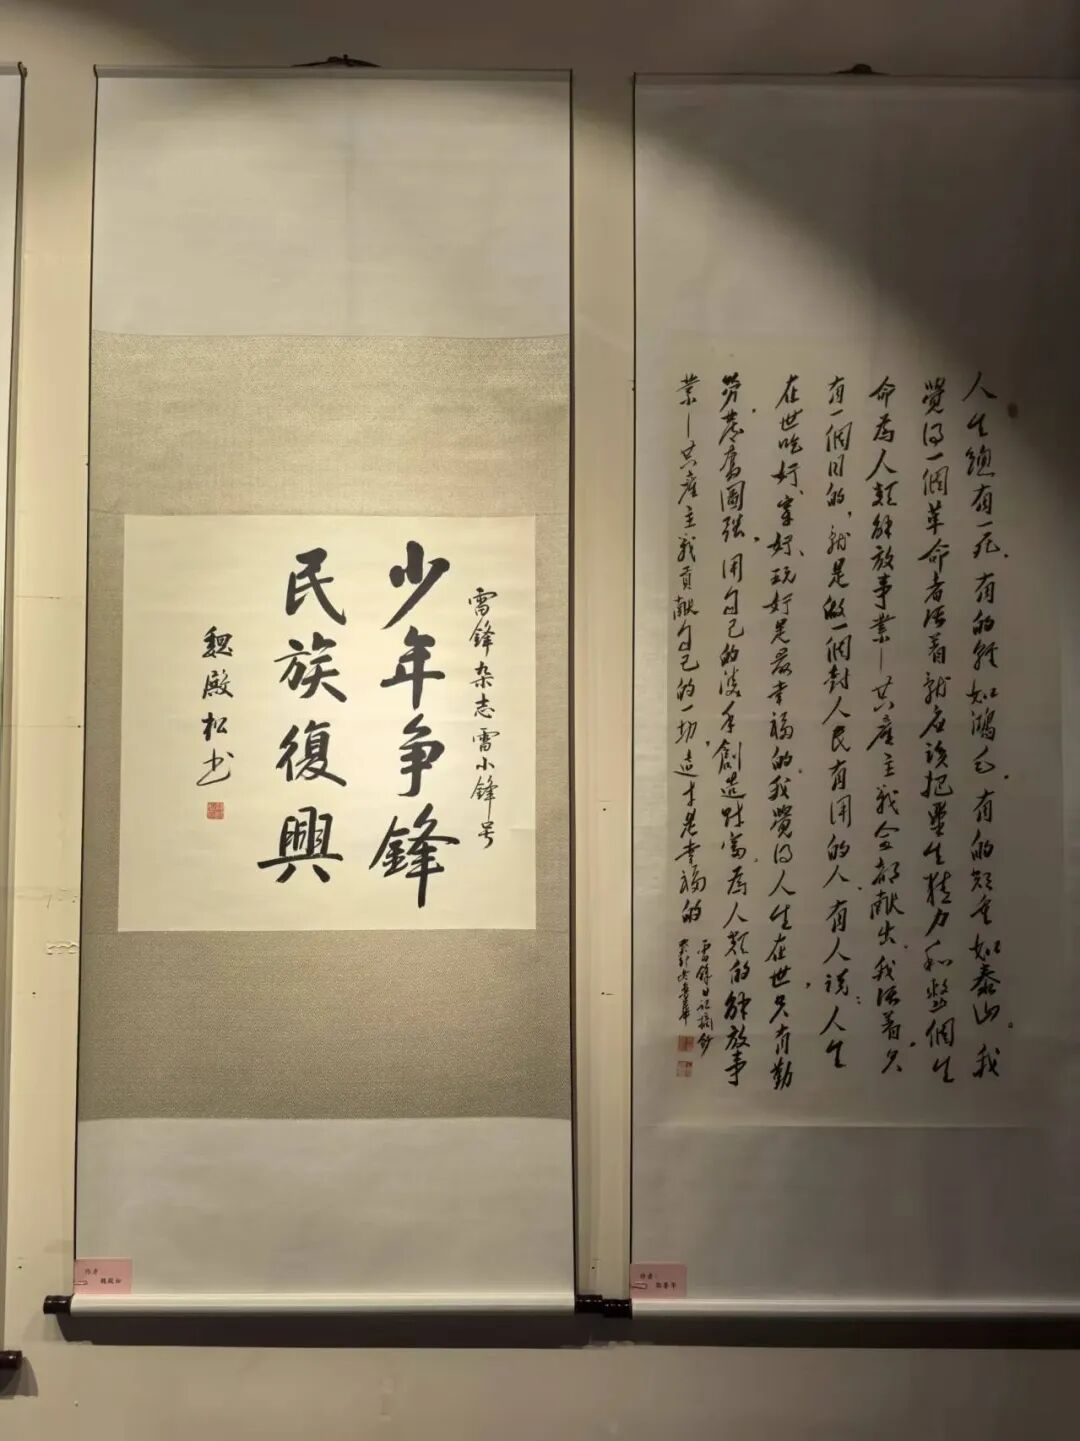 雷鋒杂志雷小鋒号
少年争鋒
民族復興
魏殿松书
作者
魏殿松
人生總有一死，有的輕如鴻毛，有的却重如泰山。我
覺得一個革命者活着就应該把畢生精力和整個生
命為人類解放事業—共產主義全部献出。我活着，只
有一個目的，就是做一個對人民有用的人。有人説：人生
在世吃好、穿好、玩好是最幸福的。我覺得人生在世，只有勤
劳，發奮圖强，用自己的双手創造財富，為人類的解放事
業—共產主義貢献自己的一切，這才是幸福的
雷鋒日記摘鈔
作者：